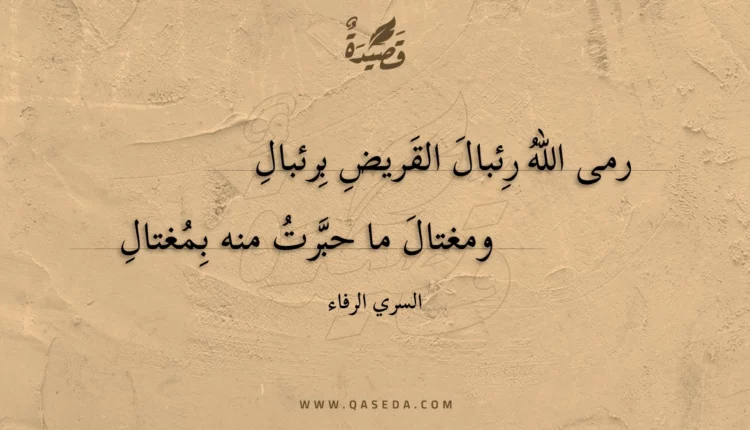 قَصِيْدَةٌ
رمى اللهُ رِئبالَ القَريضِ بِرئبالِ
ومغتالَ ما حبَّرتُ منه بِمُغتالِ
السري الرفاء
WWW.QASEDA.COM